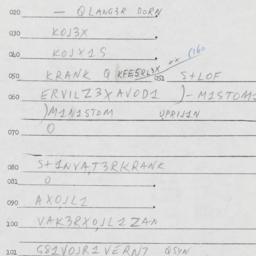 020 — QLANG3R DORN
030 KOJ3X
040 KOJX1S
050 KRANK Q S+LOF
060 ERVILZ3XAVOD1 )-M1STOM
)M1N1STOM UPRIJ1N
070 O
080 S+1NVA,T3RKRANK
081 O
090 AXOJL1
100 VAK3RXOJL1ZAN
101 GS1VOJR1VERN7 QSYN